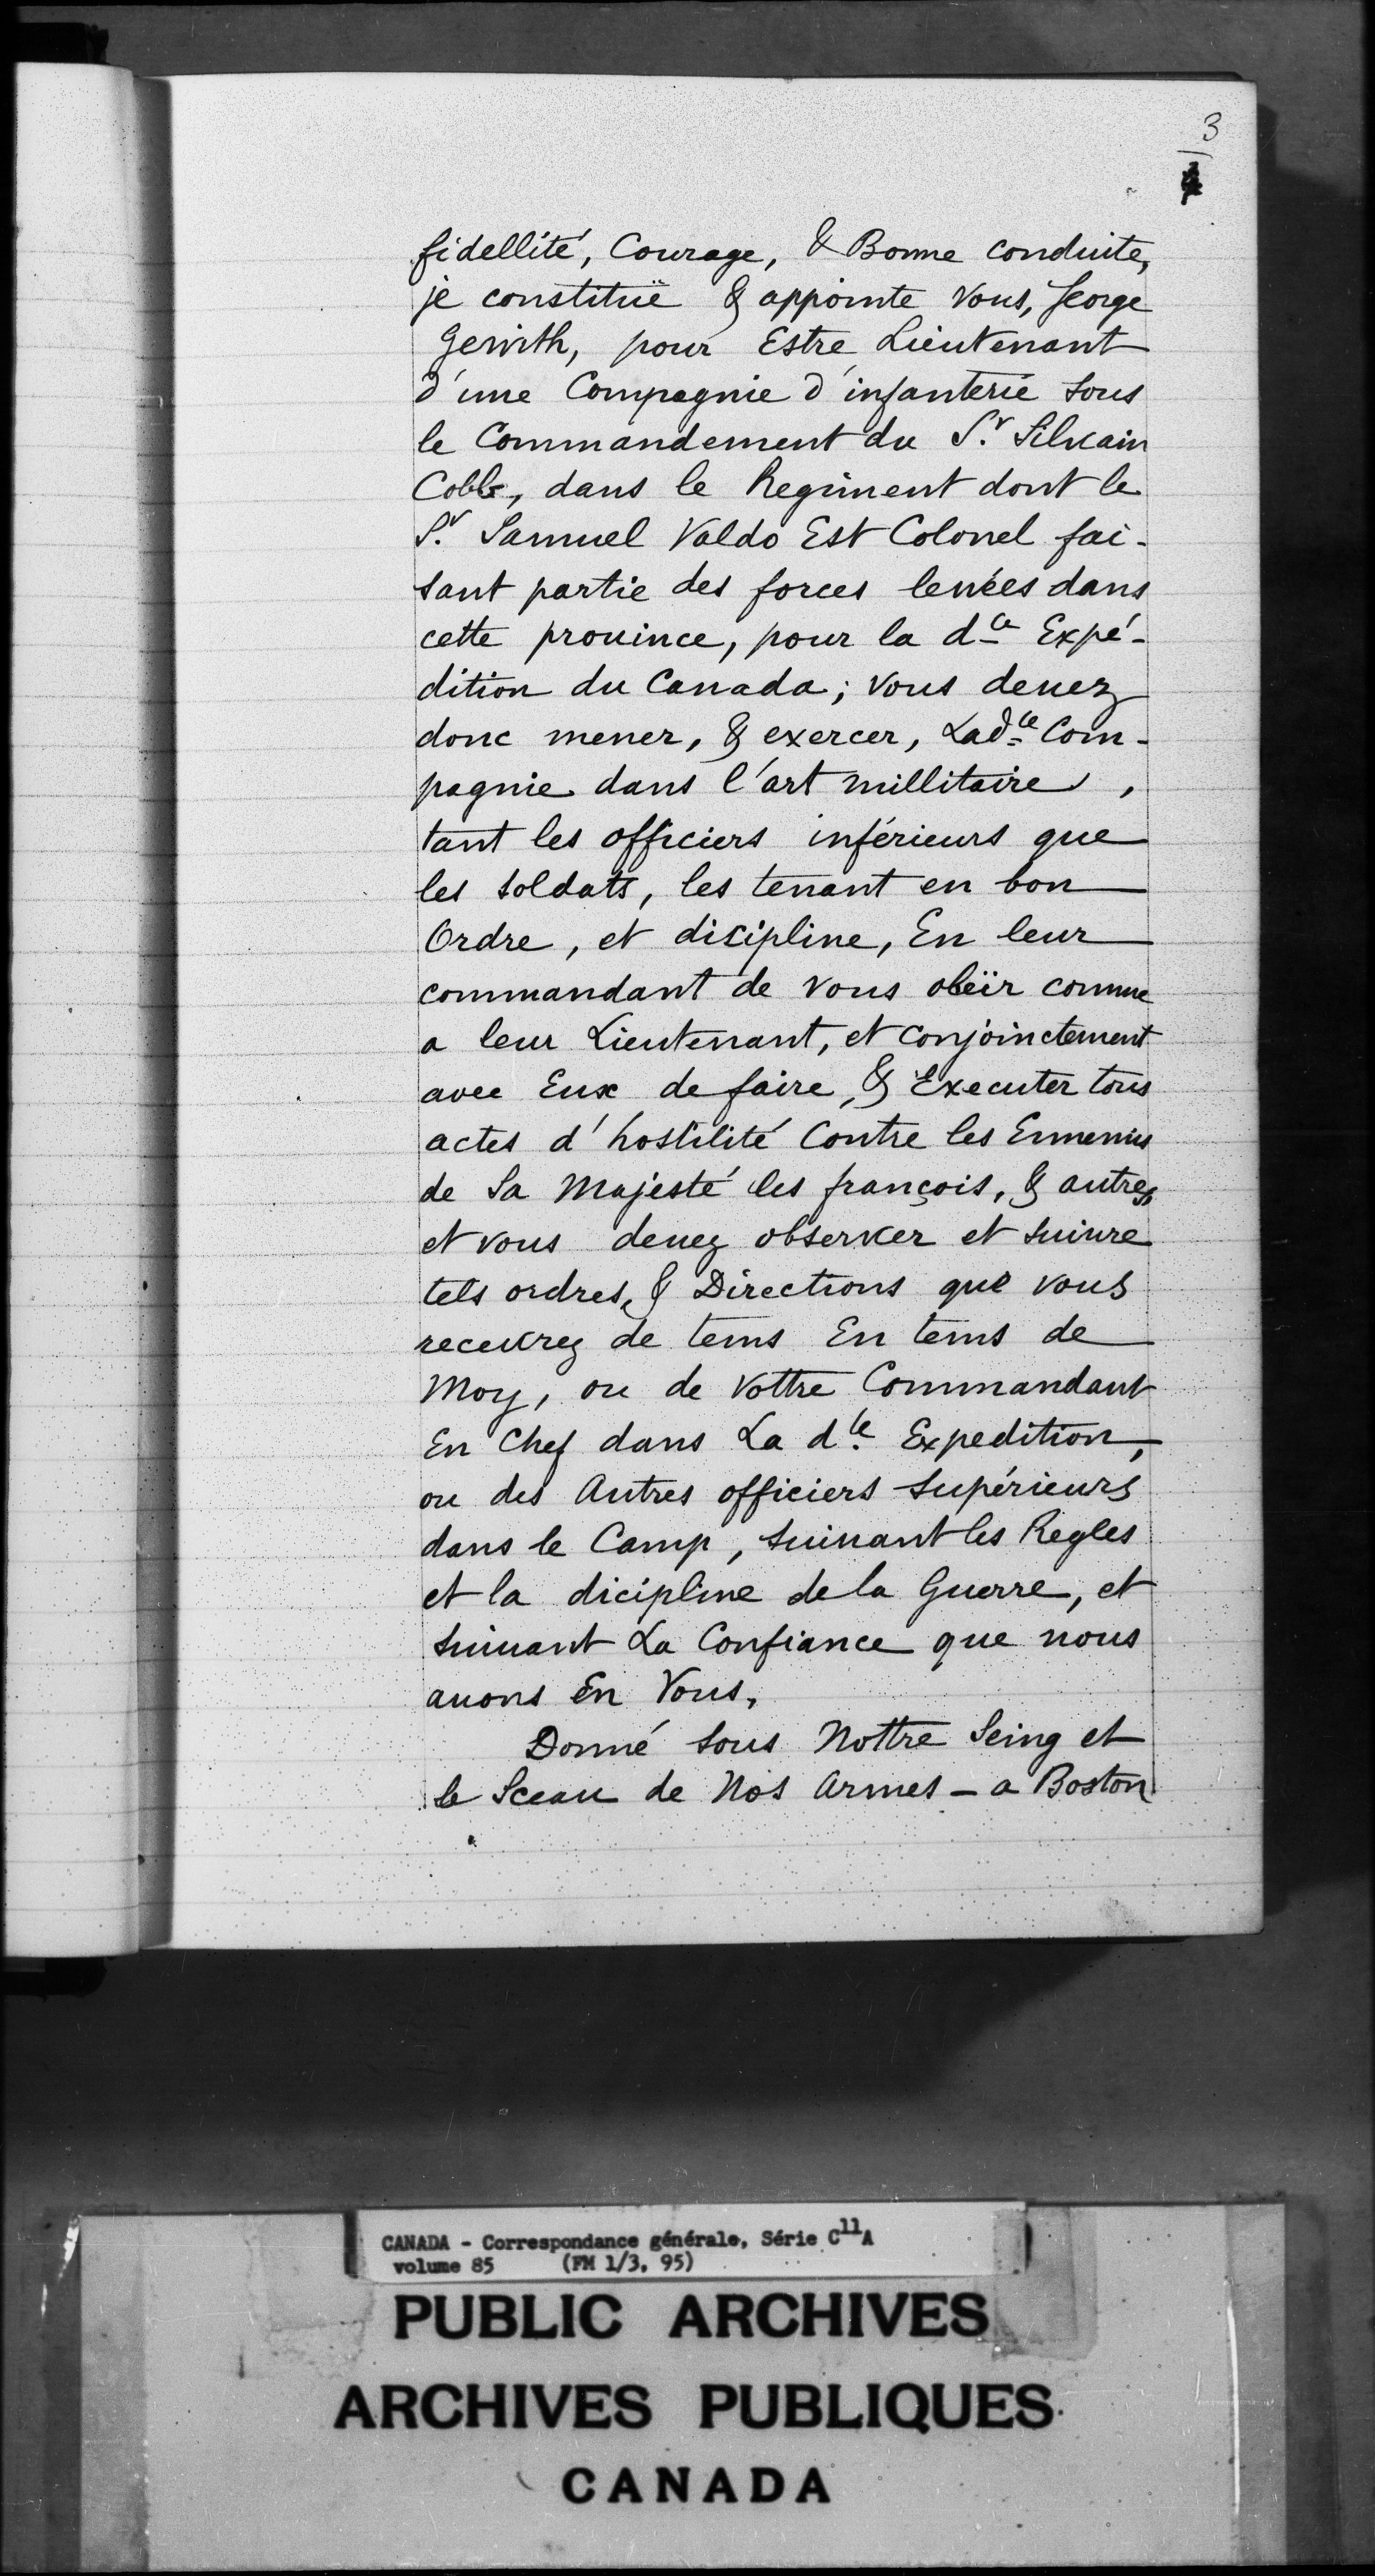 3
fidellité, Courage, & Bonne conduite,
je constituë & appointe vous, George
Gerrith, pour Estre Lieutenant
d'une Compagnie d'infanterie sous
le Commandement du S.r Silvain
Cobb, dans le Regiment dont le
S.r Samuel Valdo Est Colonel fai-
sant partie des forces leuées dans
cette prouince, pour la d.te Expé-
dition du Canada; vous deuez
donc mener, & exercer, Lad.te Com-
pagnie dans l'art millitaire,
tant les officiers inférieurs que
les soldats, les tenant en bon
Ordre, et disipline, En leur
commandant de vous obëir comme
a leur Lieutenant, et conjoinctement
avec Eux de faire, & Executer tous
actes d'hostilité Contre les Ennemis
de Sa Majesté les françois, & autres,
et vous deuez observer et suiure
tels ordres, & Directions que vous
receurez de tems En tems de
Moy, ou de Vottre Commandant
En Chef dans La d.te Expedition,
ou des Autres officiers supérieurs
dans le Camp, suiuant les Regles
et la dicipline de la Guerre, et
suiuant La Confiance que nous
auons En Vous,
Donné sous Nottre Seing et
le Sceau de Nos Armes - a Boston
CANADA - Correspondance générale, Série C11A
volume 85 (FM 1/3, 95)
PUBLIC ARCHIVES
ARCHIVES PUBLIQUES
CANADA